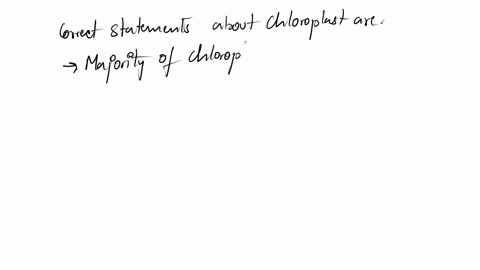 Correct statements about chloroplast are.
→ Majority of chlorop